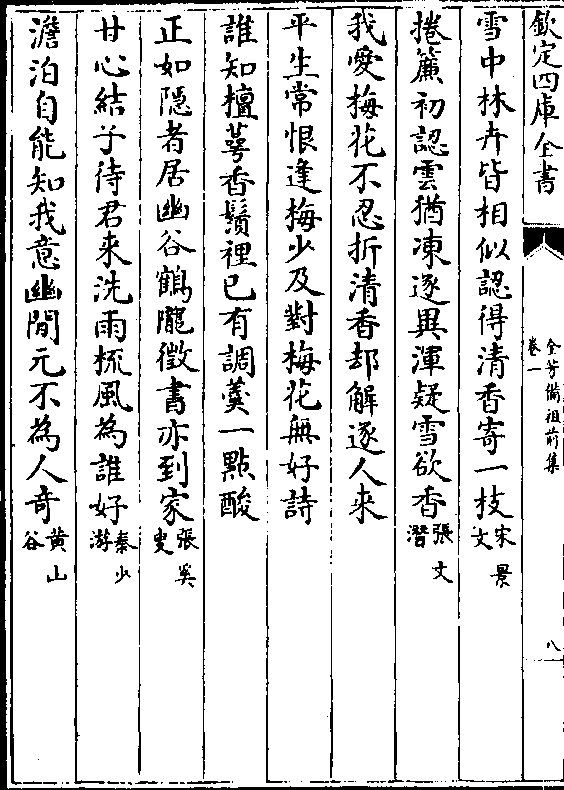 欽定四庫全書
全芳備祖前集
卷一
八
雪中林卉皆相似認得清香寄一枝宋景文
捲簾初認雲猶凍逐異渾疑雪欲香張文潛
我愛梅花不忍折清香却解逐人來
平生常恨逢梅少及對梅花無好詩
誰知檀萼香鬚裡已有調羹一點酸
正如隠者居幽谷鶴隴徵書亦到家張奚叟
甘心結子待君来洗雨梳風為誰好秦少游
澹泊自能知我意幽閒元不為人竒黄山谷